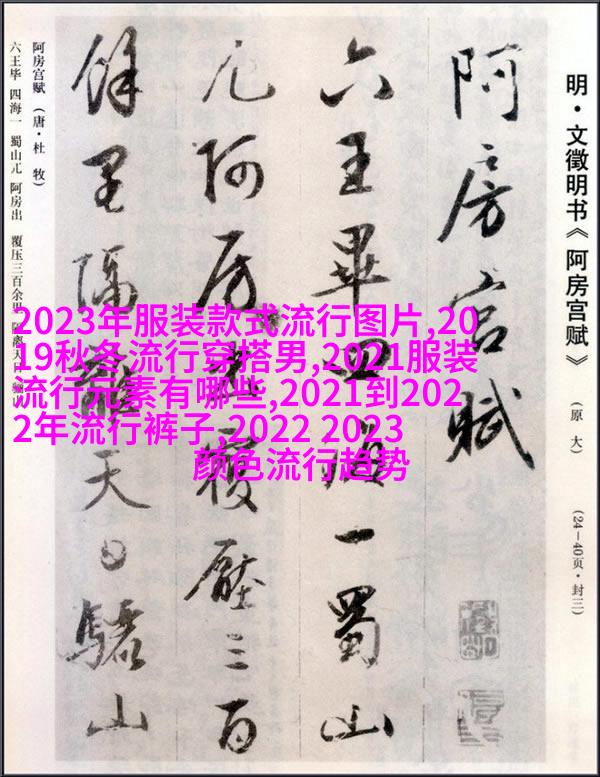 明·文徵明书《阿房宫赋》
(原大)
(24—40页·封三)
阿房宮賦
六王畢四海一蜀山
兀阿房出覆壓三百
餘里隔離天日驪山
阿房宫赋(唐·杜牧)
六王毕 四海一 蜀山兀 阿房出 覆压三百余里 隔离天日 骊山
2023年服装款式流行图片,20
19秋冬流行穿搭男,2021服装
流行元素有哪些,2021到202
2年流行裤子,2022 2023
颜色流行趋势